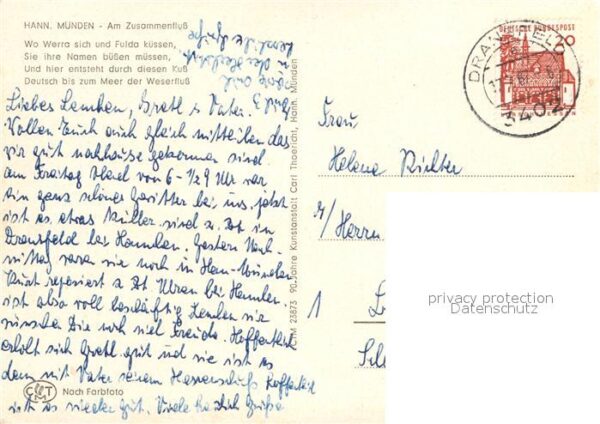 HANN. MÜNDEN - Am Zusammenfluß
Wo Werra sich und Fulda küssen,
Sie ihre Namen büßen müssen,
Und hier entsteht durch diesen Kuß
Deutsch bis zum Meer der Weserfluß
Liebes Lenchen, Gretl u Vater.
Wollen Euch auch gleich mitteilen das
wir gut nachhause gekommen sind
am Freitag Abend von 6-½9 Uhr war
ein ganz schönes Gewitter bei uns, jetzt
ist es etwas kühler sind z. Zt in
Dransfeld bei Hannchen. Gestern Nach-
mittag waren wir noch in Han-Münden
Kurt repariert z Zt Uhren bei
ist also voll beschäftig Lenchen wir
wünschen Dir noch viel Freude. Hoffentlich
erholt sich Gretl gut und wie ist es
denn mit Vater seinem Hoffentlich
ist es wieder gut. Viele herzlich Grüße
CTT Nach Farbfoto
CTM 23873 90 Jahre Kunstanstalt Carl Thoericht, Hann. Münden
DEUTSCHE BUNDESPOST
20
DRANSFELD
3402
Frau
Helene Richter
Herrn
1
privacy protection
Datenschutz